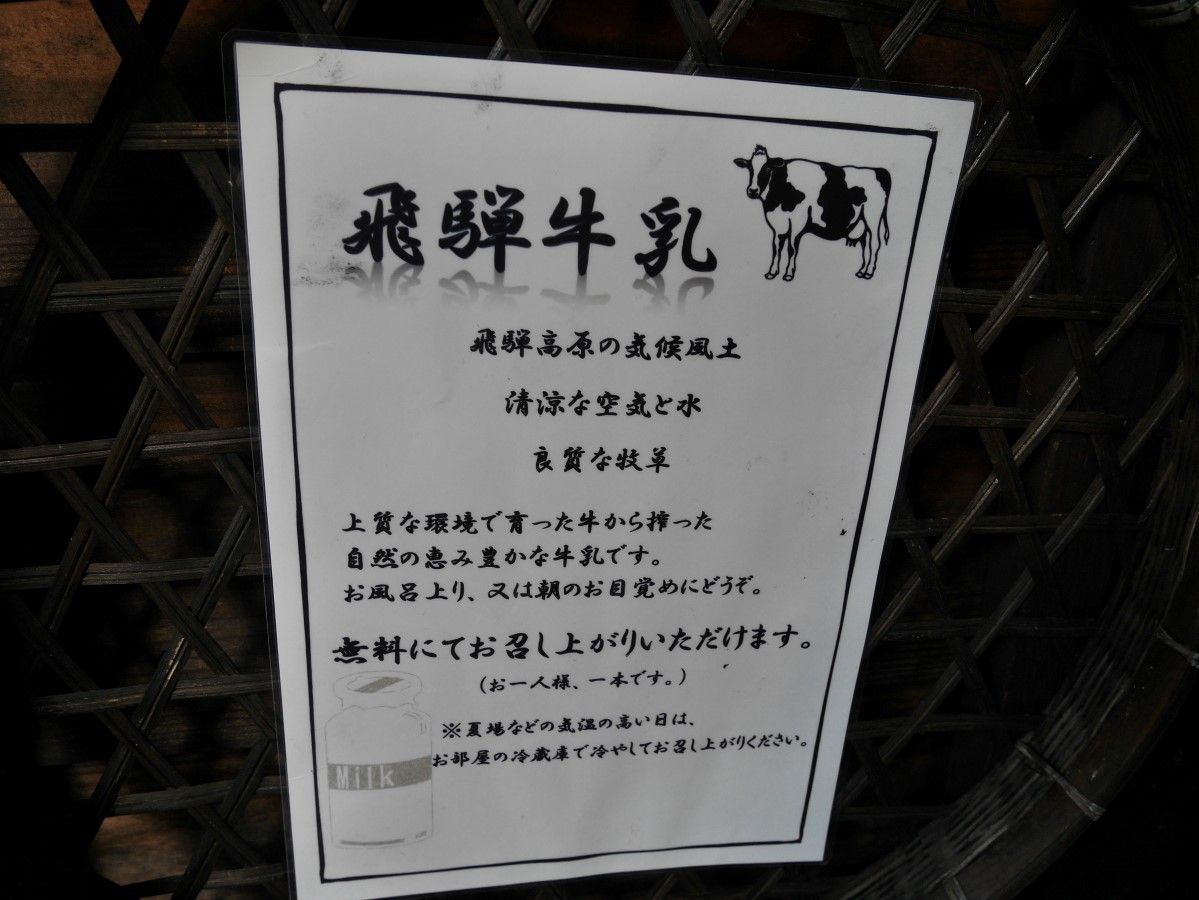 飛騨牛乳
飛騨高原の気候風土
清涼な空気と水
良質な牧草
上質な環境で育った牛から搾った
自然の恵み豊かな牛乳です。
お風呂上り、又は朝のお目覚めにどうぞ。
無料にてお召し上がりいただけます。
(お一人様、一本です。)
※夏場などの気温の高い日は、
お部屋の冷蔵庫で冷やしてお召し上がりください。
Milk